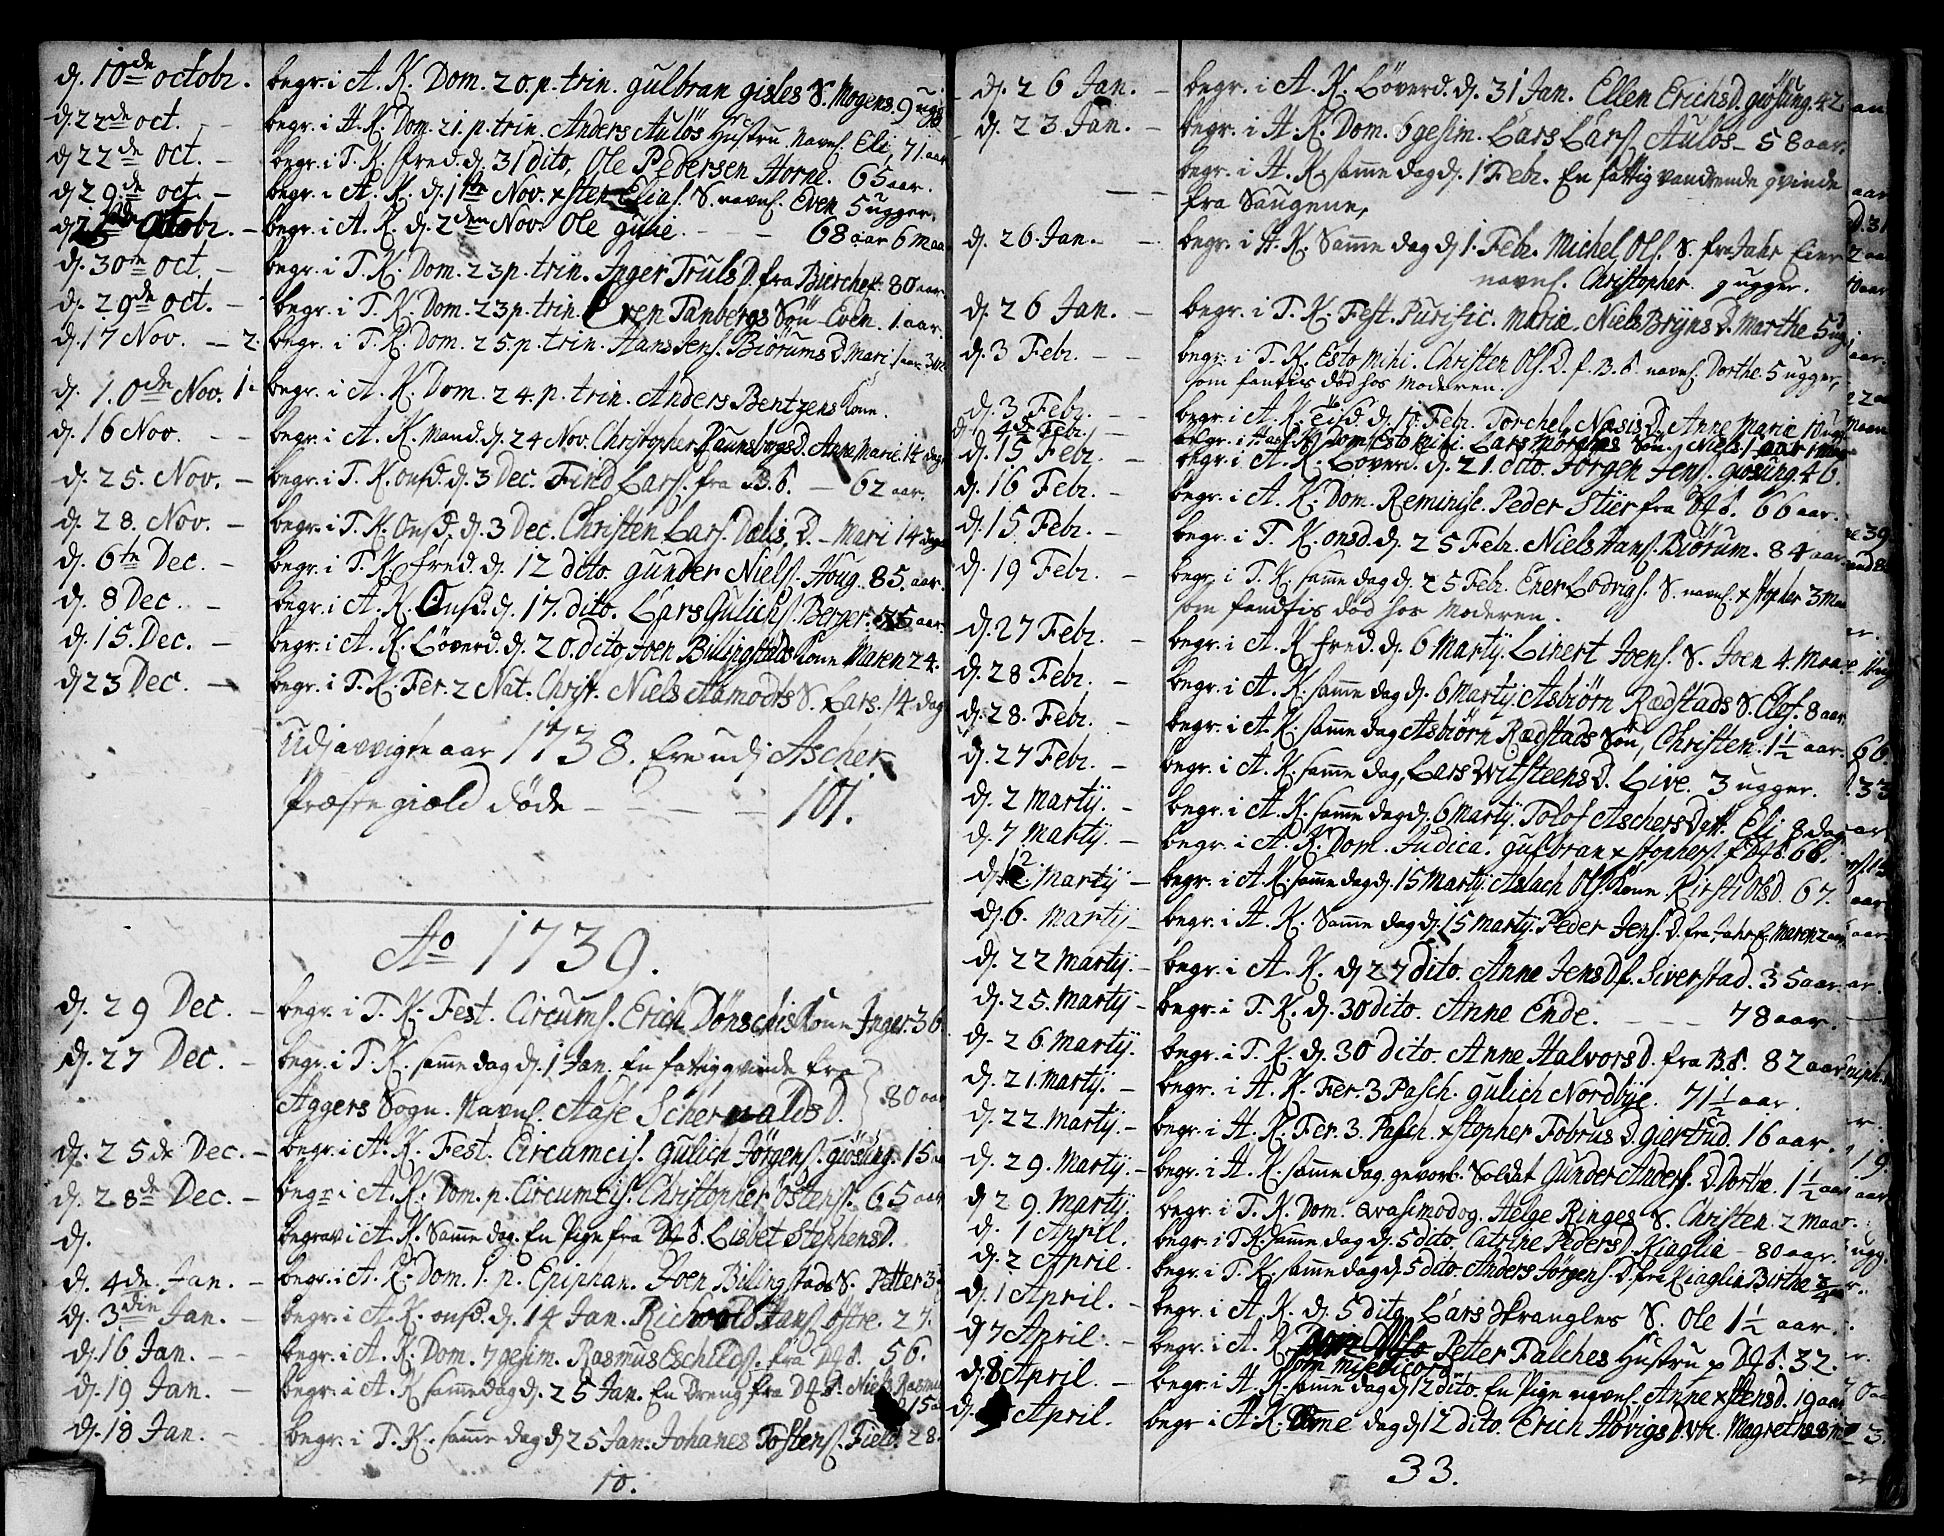 d. 10de octobr. begr. i A. K. Dom. 20. p. trin. gulbran gisles S. Mogens. 9 ugg
d. 22de oct. - - begr. i H. K. Dom. 21. p. trin. Anders Aulös Hustru navnl. Eli, 71 aar
d 22de oct. - begr. i T. K. fred. d. 31 dito, Ole Pedersen Horni. 65 aar.
d 29de oct. - begr. i A. K. d. 1ste Nov. xsten Elias. S. navnl. Even 5 ugger,
d octobr. - begr. i A. K. d. 2den Nov. Ole gulie - - 68 aar 6 maa
d. 30te oct. - begr. i T. K. Dom. 23 p. trin. Inger Truls D. fra Bierche f. 80 aar.
d. 29de oct. - begr. i T. K. Dom. 23 p. trin. Even Tanbergs Sön Even. 1. aar.
d. 17 Nov. - 2. begr. i T. K. Dom. 25. p. trin. Hans Jens. Biörums D. Mari, 1 aar 3 m
d. 10de Nov. 1. begr. i A. K. Dom. 24. p. trin. Anders Bentzens Kone.
d. 16 Nov. - - begr. i A. K. Mand. d. 24 Nov. Christopher Raunsborgs D. Anne Marie. 14 dage
d. 25. Nov. - begr. i T. K. onsd. d. 3 Dec. Find Lars. fra B. 6. - 62 aar.
d. 28. Nov. - begr. i T. K. Onsd. d. 3 Dec. Christen Lars. Dælis, D. - Mari 14 dage
d. 6te Dec. - begr. i T. K. fred. d. 12 dito. gunder Niels. Houg. 85. aar.
d. 8 Dec. - begr. i A. K. Onsd. d. 17. dito. Lars Gulichs. Berger. aar.
d. 15. Dec. - begr. i A. K. Löverd. d. 20. dito Joen Billingstads Kone Maren 24.
d 23 Dec. - begr. i T. K. Fer. 2 Nat. Christ. Niels Aamodts S. Lars. 14. dag
Udj avvigte aar 1738. Ere udj Ascher
Præste giæld Döde - - - 101.
Ao 1739.
d. 29 Dec. - begr. i T. K. Fest. Circums. Erich Dönschis Kone Inger. 36
d. 27 Dec. - begr. i T. K. samme dag d. 1 Jan. En fattig qvinde fra
Aggers Sogn. Navnl. Aase Scherwalds D. 80 aar
d. 25de Dec. - begr. i A. K. Fest. Circumcis. gulich Jörgens. giösung. 15
d. 28de Dec. - begr. i A. K. Dom. p. Circumcis. Christopher Östens. 65 aar
d. begrav i A. K. Samme dag. En Pige fra Lisbet Stephens D.
d. 4de Jan. - begr. i A. K. Dom. 1. p. Epiphan. Joen Billingstads S. Petter 3
d. 3die Jan. - begr. i A. K. onsd. d. 14 Jan. Richwold Hans. östre. 27.
d. 16 Jan. - - begr. i A. K. Dom. 7gesim. Rasmus Eschilds. fra 56.
d. 19 Jan. - begr. i A. K samme dag d. 25 Jan. En Dreng fra Niels Rasmus 15
d. 18 Jan. - begr. i T. K. samme dag d 25 Jan. Johanes Tostens. Field. 28.
10.
d. 26 Jan. - begr. i A. K. Löverd. d. 31 Jan. Ellen Erichs D. giösung. 42
d. 23 Jan. - begr. i H. K. Dom. 6gesim. Lars Lars. Aulös - 58 aar.
- - begr. i H. K. samme dag d. 1 Febr. En fattig vandrende qvinde
fra Saugene,
d. 26 Jan. - - begr. i H. K. Samme dag d 1. Febr. Michel Ols. S. fra Jahr Eier
navnl. Christopher 9 ugger.
d. 26 Jan. - begr. i T. K. Fest. Purific. Mariæ. Niels Bryns D. Marthe 5
d. 3 Febr. - - begr. i T. K. Esto mihi. Christen Ols. D. f. B. 6. navnl. Dorthe. 5 ugger,
som fantis död hos Moderen.
d. 3 Febr. - begr. i A. K. Tiisd. d. 10. Febr. Torchel Næsis D. Anne Marie 10 ugg
d. 4de Febr. begr. i Has. K. Dom. Esto mihi. Lars Morches Sön, Niels 1 aar 1 maa
d. 15 Febr. - begr. i A. K. Löverd. d. 21. dito. Jörgen Jens. giösung. 46.
d. 16 Febr. - begr. i A. K. Dom. Reminisc. Peder Stier fra 66 aar.
d. 15 Febr. - begr. i T. K. onsd. d. 25 Febr. Niels Hans. Biörum. 84 aar.
d. 19 Febr. - begr. i T. K. samme dag d. 25 Febr. Ener Lodvigs. S. navnl. xstopher 3 Maa
som fandtis död hos Moderen.
d. 27 Febr. - begr. i A. K fred. d. 6 Martij. Linert Joens. S. Joen 4. Maa
d. 28 Febr. - begr. i A. K. samme dag d. 6 Martij. Asbiörn Rædstads S. Clef. 8 aar
d. 28. Febr. - begr. i A. K. samme dag Asbiörn Rædstads Sön, Christen. 1½ aar.
d. 27 Febr. - begr. i A. K. samme dag, Lars Witsteens D. Live. 3 ugger.
d. 2 Martij. - begr. i A. K. samme dag d. 6 Martij. Tolof Aschers Datt. Eli 8 dag
d. 7 Martij. - begr. i A. K. Dom. Judica. gulbran xstophers. f. 66.
d. 12. Martij - begr. i A. K. samme dag d. 15 Martij Aslach Ols. Kone Kirsti Ols D. 67.
d. 6. Martij - begr. i H. K. Samme dag d. 15 Martij. Peder Jens. D. fra Jahr f. Maren 2 aar
d. 22 Martij. - begr. i A. K. d 27 dito. Anne Jens D. f. Siverstad. 35 aar
d. 25. Martij - begr. i T. K. d. 30 dito. Anne Ende. - - - 78 aar.
d. 26 Martij. begr. i T. K. d. 30 dito. Anne Halvors D. fra B. 6. 82 aar
d. 21. Martij. - begr. i H. K. Fer. 3 Pasch. gulich Nordbye. 71½ aar.
d. 22. Martij. - begr. i H. K. Fer. 3. Pasch. xstopher Tobrus D. giertrud. 16 aar.
d. 29. Martij. - begr. i H. K. samme dag. gevorb. Soldat Gunder Anders. D. Dorthe. 1½ aar
d 29. Martij. begr. i T. K. Dom. Qvasimodog. Helge Ringes S. Christen 2 maa
d. 1 April. begr. i T K. samme dag d. 5 dito. Catrine Peders D. Kiaglia - 80 aar.
d. 2 April. begr. i T. K. samme dag d 5 dito. Anders Jörgens. D. fra Kiaglia Birthe ¾
d. 1 April. - begr. i A. K. d. 5 dito Lars Skrangles S. Ole 1½ aar.
d 7 April. - begr. i A. K Dom misericord Petter Falches Hustru p 32.
d. 8 April. - begr. i H. K. samme dag d 12 dito. En Pige navnl. Anne xstens D. 19 aar
d. April. begr i A. K. samme dag d 12 dito. Erich Hovigs D. Magrethe 8 m
33.